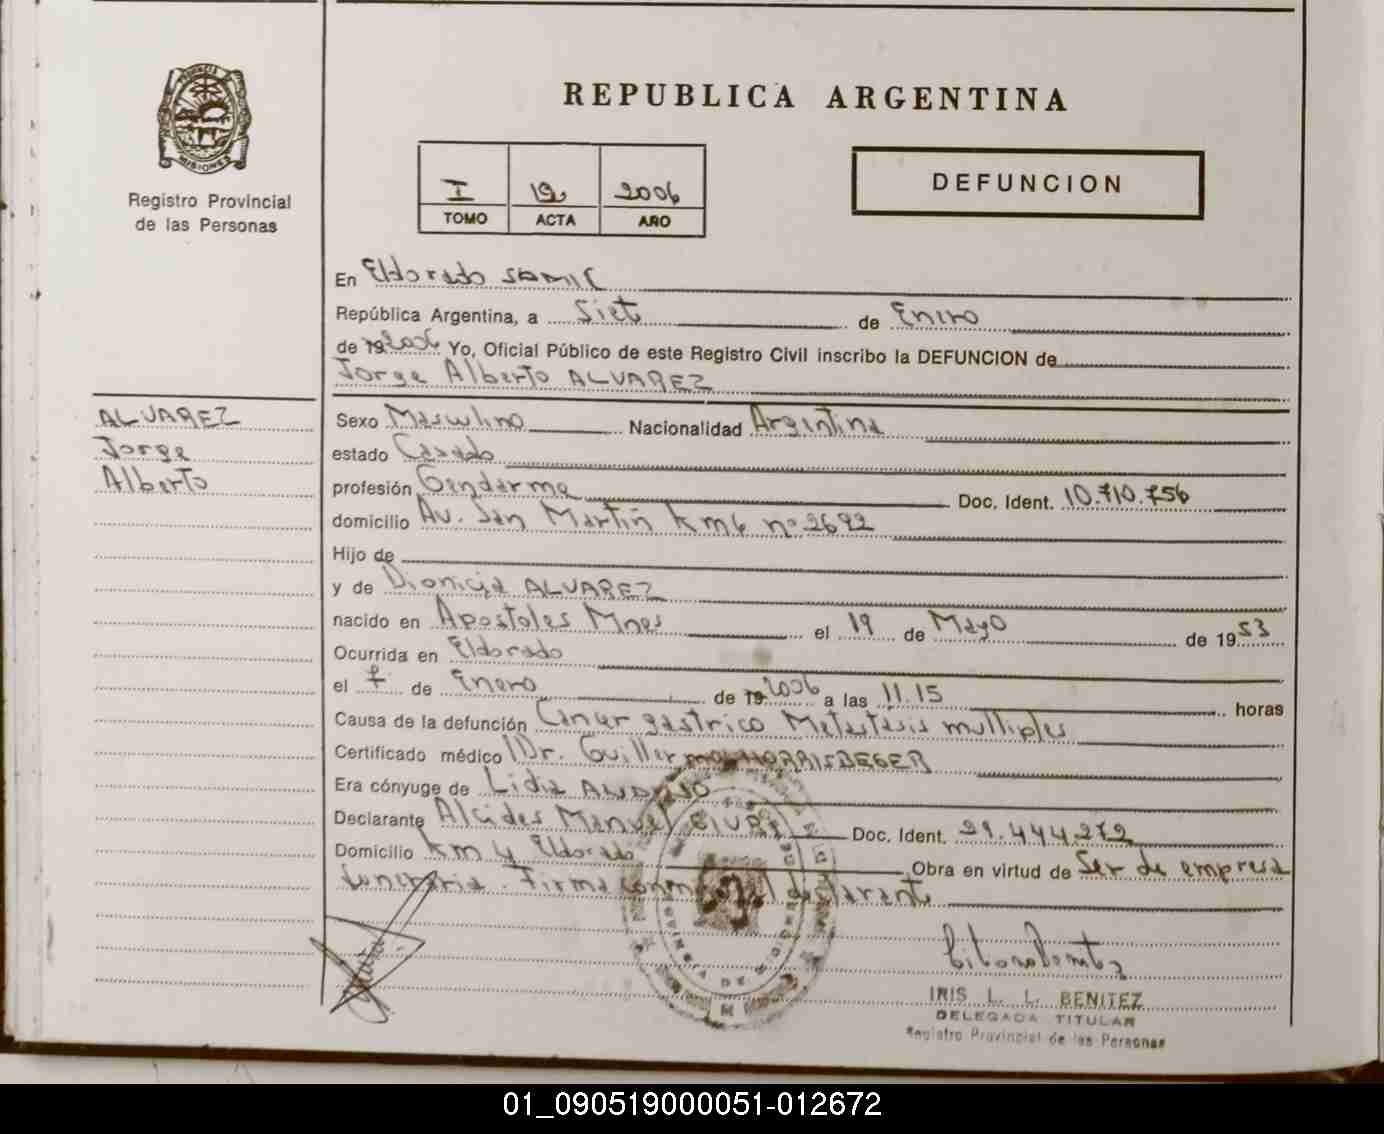 REPUBLICA ARGENTINA
PROVINCIA DE
MISIONES
Registro Provincial
de las Personas
I 19 2006
TOMO ACTA AÑO
DEFUNCION
En Eldorado SAMIC
República Argentina, a Siete de Enero
de 19 2006 Yo, Oficial Público de este Registro Civil inscribo la DEFUNCION de
Jorge Alberto ALVAREZ
ALVAREZ
Jorge
Alberto
Sexo Masculino Nacionalidad Argentina
estado Casado
profesión Gendarme Doc. Ident. 10.710.756
domicilio Av. San Martín Km 6 nº 2692
Hijo de
y de Dionicia ALVAREZ
nacido en Apostoles Mnes el 19 de Mayo de 1953
Ocurrida en Eldorado
el 7 de Enero de 19 2006 a las 11.15 horas
Causa de la defunción Cancer gastrico Metastasis multiples
Certificado médico Dr. Guillermo
Era cónyuge de Lidia
Declarante Alcides Manuel Doc. Ident. 21.444.272
Domicilio Km 4 Eldorado Obra en virtud de Ser de empresa
funeraria. Firma conmigo el declarante
IRIS L. L. BENITEZ
DELEGADA TITULAR
Registro Provincial de las Personas
01_090519000051-012672